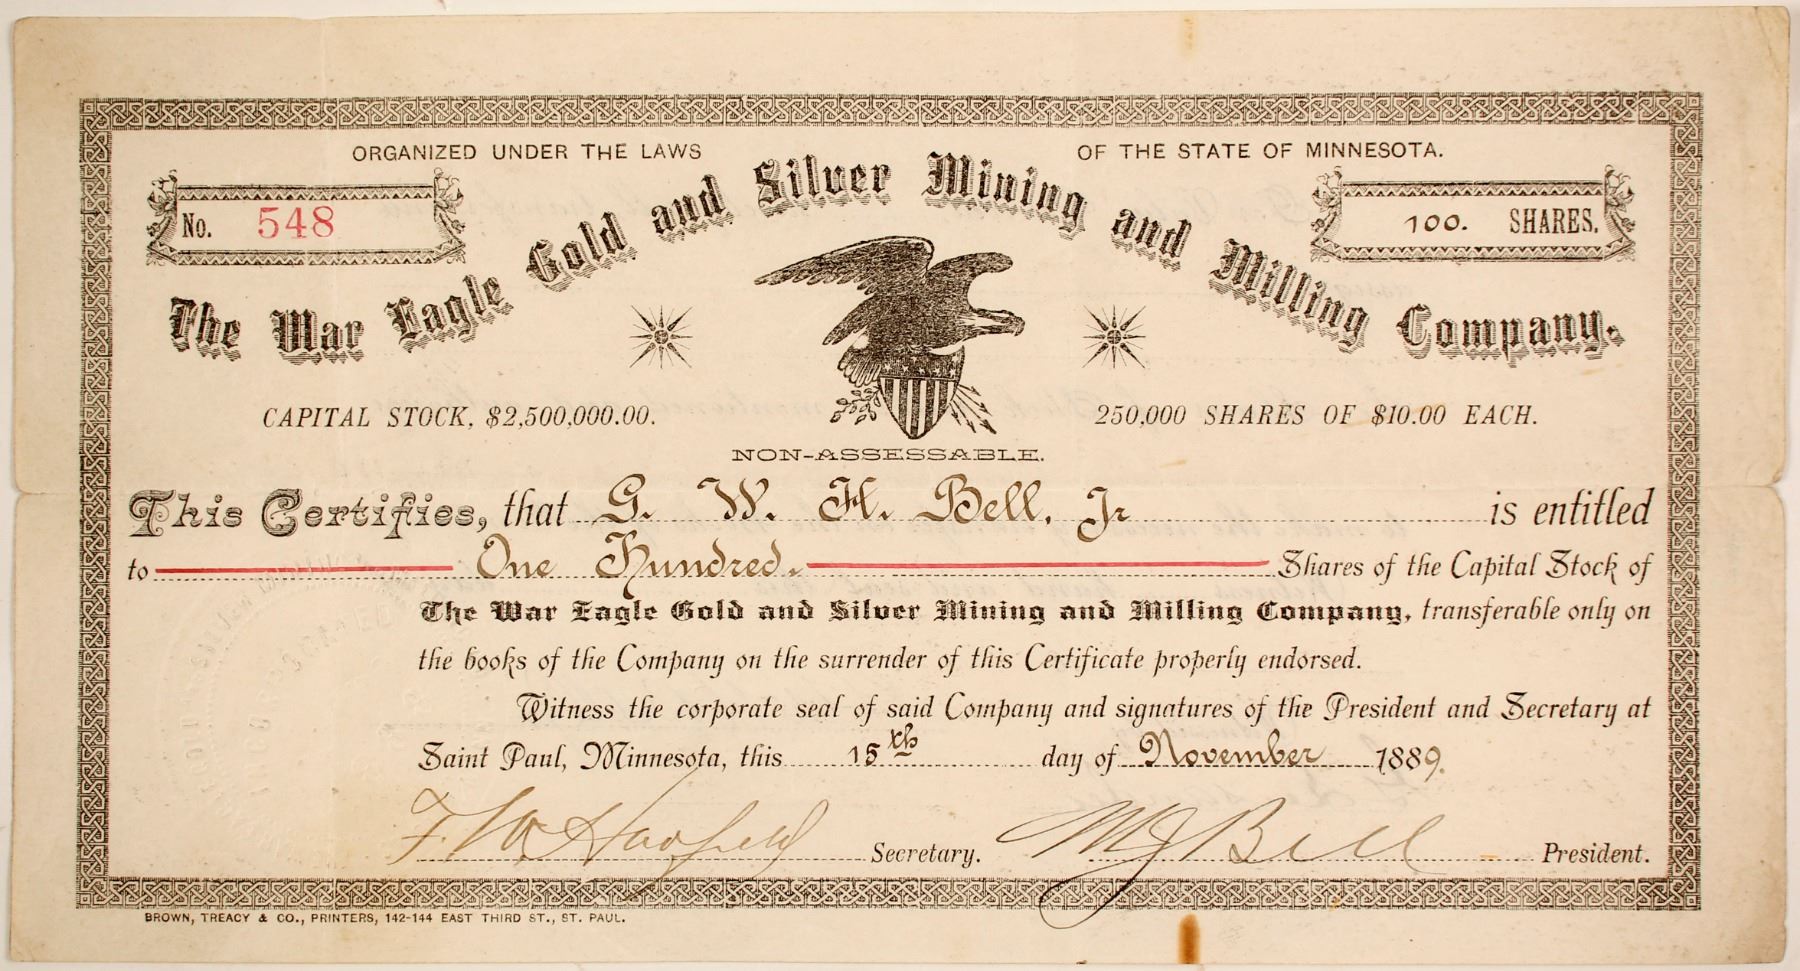 ORGANIZED UNDER THE LAWS OF THE STATE OF MINNESOTA.
No. 548
100. SHARES.
The War Eagle Gold and Silver Mining and Milling Company.
CAPITAL STOCK, $2,500,000.00.
250,000 SHARES OF $10.00 EACH.
NON-ASSESSABLE.
This Certifies, that G. W. H. Bell, Jr is entitled
to One Hundred. Shares of the Capital Stock of
The War Eagle Gold and Silver Mining and Milling Company, transferable only on
the books of the Company on the surrender of this Certificate properly endorsed.
Witness the corporate seal of said Company and signatures of the President and Secretary at
Saint Paul, Minnesota, this 15th day of November 1889.
F. W. Secretary. M J Bell President.
BROWN, TREACY & CO., PRINTERS, 142-144 EAST THIRD ST., ST. PAUL.